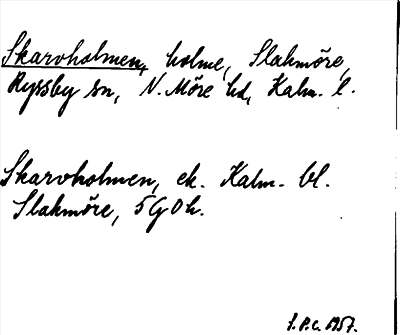 Skarvholmen, holme, Slakmöre,
Ryssby sn, N. Möre hd, Kalm. l.
Skarvholmen, ek. Kalm. bl.
Slakmöre, 5G0h.
S.P.C. 1957.